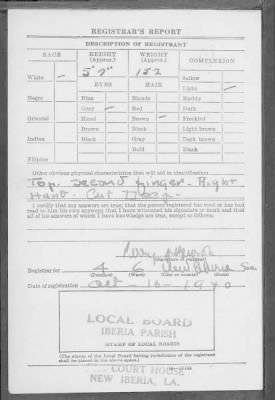 REGISTRAR'S REPORT
DESCRIPTION OF REGISTRANT
RACE HEIGHT (Approx.) WEIGHT (Approx.) COMPLEXION
White 5' 7" 152 Sallow
EYES HAIR Light
Negro Blue Blonde Ruddy
Gray Red Dark
Oriental Hazel Brown Freckled
Brown Black Light brown
Indian Black Gray Dark brown
Bald Black
Filipino
Other obvious physical characteristics that will aid in identification
Top. Second finger. Right
Hand - Cut
I certify that my answers are true; that the person registered has read or has had
read to him his own answers; that I have witnessed his signature or mark and that
all of his answers of which I have knowledge are true, except as follows:
(Signature of registrar)
Registrar for 4 6 New Iberia La
(Precinct) (Ward) (City or county) (State)
Date of registration Oct - 16 - 1940
LOCAL BOARD
IBERIA PARISH
(STAMP OF LOCAL BOARD)
(The stamp of the Local Board having jurisdiction of the registrant
shall be placed in the above space.)
COURT HOUSE
NEW IBERIA, LA.